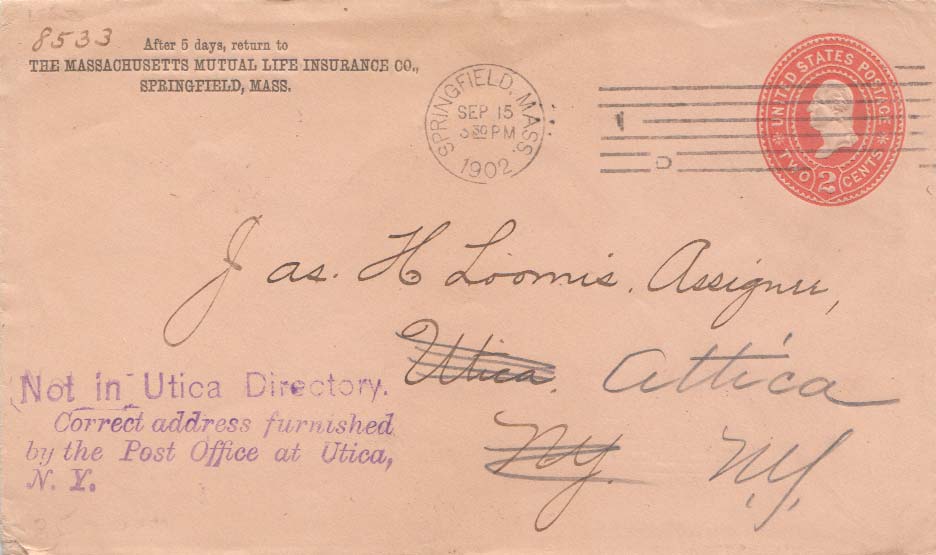 8533
After 5 days, return to
THE MASSACHUSETTS MUTUAL LIFE INSURANCE CO.,
SPRINGFIELD, MASS.
SPRINGFIELD, MASS.
SEP 15
30 PM
1902
D
UNITED STATES POSTAGE
TWO 2 CENTS
Jas. H Loomis. Assignee,
Utica. Attica
NY. N.Y.
Not in Utica Directory.
Correct address furnished
by the Post Office at Utica,
N. Y.